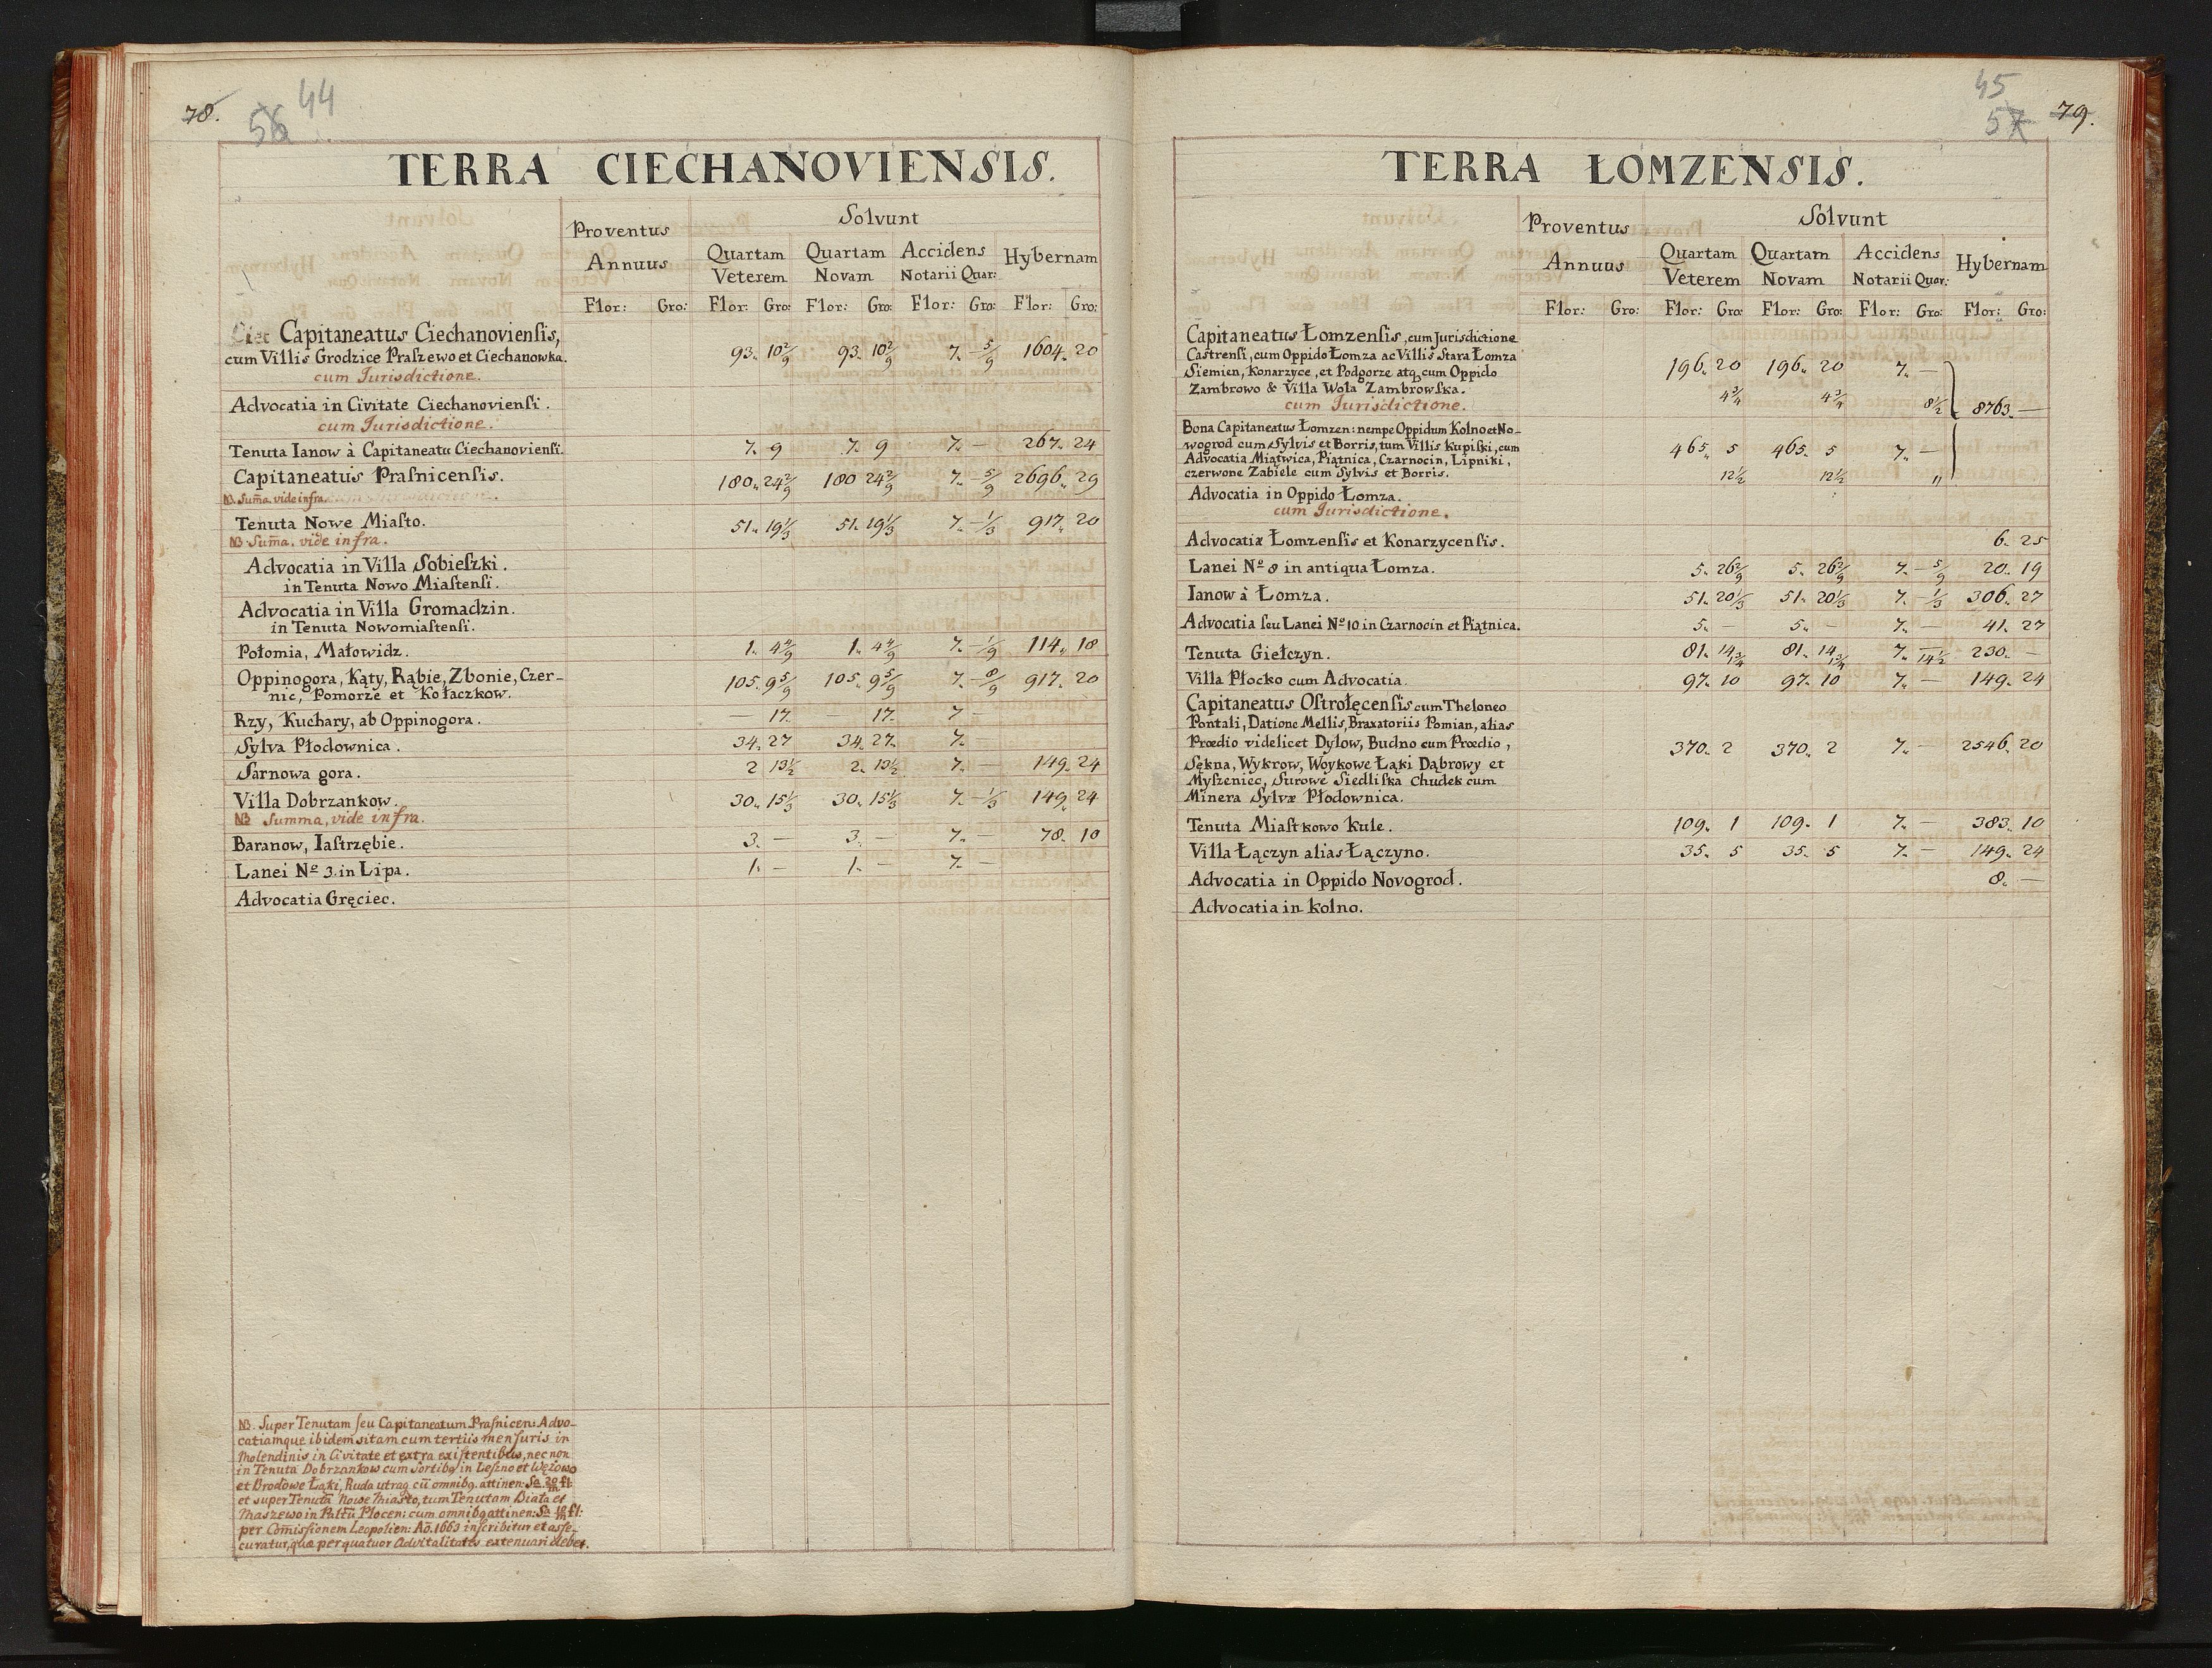 78.
56
44
TERRA CIECHANOVIENSIS.
Proventus
Annuus
Solvunt
Quartam
Veterem
Quartam
Novam
Accidens
Notarii Quar:
Hybernam
Flor: Gro: Flor: Gro: Flor: Gro: Flor: Gro: Flor: Gro:
Capitaneatus Ciechanoviensis,
cum Villis Grodzice Praszewo et Ciechanowka. 93. 10 2/9 93. 10 2/9 7. – 5/9 1604. 20
cum Jurisdictione.
Advocatia in Civitate Ciechanoviensi.
cum Jurisdictione.
Tenuta Ianow à Capitaneatu Ciechanoviensi. 7. 9 7. 9 7. – 267. 24
Capitaneatus Prasnicensis. 180. 24 2/9 180 24 2/9 7. – 5/9 2696. 29
NB. Sum̃a vide infra.
Tenuta Nowe Miasto. 51. 19 1/3 51. 19 1/3 7. – 1/3 917. 20
NB. Sum̃a. vide infra.
Advocatia in Villa Sobieszki.
in Tenuta Nowo Miastensi.
Advocatia in Villa Gromadzin.
in Tenuta Nowomiastensi.
Połomia, Małowidz. 1. 4 4/9 1. 4 4/9 7. – 1/9 114. 18
Oppinogora, Kąty, Rąbie, Zbonie, Czer-
nic, Pomorze et Kołaczkow. 105. 9 5/9 105. 9 5/9 7. – 8/9 917. 20
Rzy, Kuchary, ab Oppinogora. – 17. – 17. 7 –
Sylva Płodownica. 34. 27 34. 27. 7. –
Sarnowa gora. 2 13 1/2 2. 13 1/2 7. – 149. 24
Villa Dobrzankow. 30. 15 1/3 30. 15 1/3 7. – 1/3 149. 24
NB Summa, vide infra.
Baranow, Iastrzębie. 3. – 3. – 7. – 78. 10
Lanei Nº 3. in Lipa. 1. – 1. – 7. –
Advocatia Gręciec.
NB. Super Tenutam seu Capitaneatum Prasnicen: Advo-
catiamque ibidem sitam cum tertiis mensuris in
Molendinis in Civitate et extra existentibus, nec non
in Tenuta Dobrzankow cum Sortibq in Leszno et Wężowo
et Brodowe Łąki, Ruda utraq cū omnibq. attinen: Sa 20/m fl:
et super Tenutā Nowe Miasto, tum Tenutam Biała et
Maszewo in Paltū Plocen: cum omnibq attinen: Sa 10/m fl:
per Com̃issionem Leopolien: Aõ. 1663 inscribitur et asse-
curatur, quæ per quatuor advitalitates extenuari debet.
45
57
79.
TERRA ŁOMZENSIS.
Proventus
Annuus
Solvunt
Quartam
Veterem
Quartam
Novam
Accidens
Notarii Quar:
Hybernam
Flor: Gro: Flor: Gro: Flor: Gro: Flor: Gro: Flor: Gro:
Capitaneatus Łomzensis, cum Jurisdictione
Castrensi, cum Oppido Łomza ac Villis Stara Łomza
Siemien, Konarzyce, et Podgorze atq cum Oppido 196. 20 196. 20 7. –
Zambrowo & Villa Wola Zambrowska. 4 3/4 4 3/4 8 1/2
cum Jurisdictione. 8763. –
Bona Capitaneatus Łomzen: nempe Oppidum Kolno et No-
wogrod cum Sylvis et Borris, tum Villis Kupiski, cum 465. 5 465. 5 7. –
Advocatia Miątwica, Piątnica, Czarnocin, Lipniki,
czerwone Zabiele cum Sylvis et Borris. 12 1/2 12 1/2 "
Advocatia in Oppido Łomza.
cum Jurisdictione.
Advocatiæ Łomzensis et Konarzycensis. 6. 25
Lanei Nº 8 in antiqua Łomza. 5. 26 2/9 5. 26 2/9 7. – 5/9 20. 19
Ianow à Łomza. 51. 20 1/3 51. 20 1/3 7. – 1/3 306. 27
Advocatia seu Lanei Nº 10 in Czarnocin et Piątnica. 5. – 5. – 7. – 41. 27
Tenuta Giełczyn. 81. 14 3/4 81. 14 3/4 7. 14 1/2 230. –
Villa Płocko cum Advocatia. 97. 10 97. 10 7. – 149. 24
Capitaneatus Ostrołęcensis cum Theloneo
Pontali, Datione Mellis, Braxatoriis Pomian, alias
Prœdio videlicet Dylow, Budno cum Prœdio, 370. 2 370. 2 7. – 2546. 20
Sękna, Wykrow, Woykowe Łąki Dąbrowy et
Myszeniec, Surowe Siedliska Chudek cum
Minera Sylvæ Płodownica.
Tenuta Miastkowo Kule. 109. 1 109. 1 7. – 383. 10
Villa Łączyn alias Łączyno. 35. 5 35. 5 7. – 149. 24
Advocatia in Oppido Novogrod. 8. –
Advocatia in kolno.